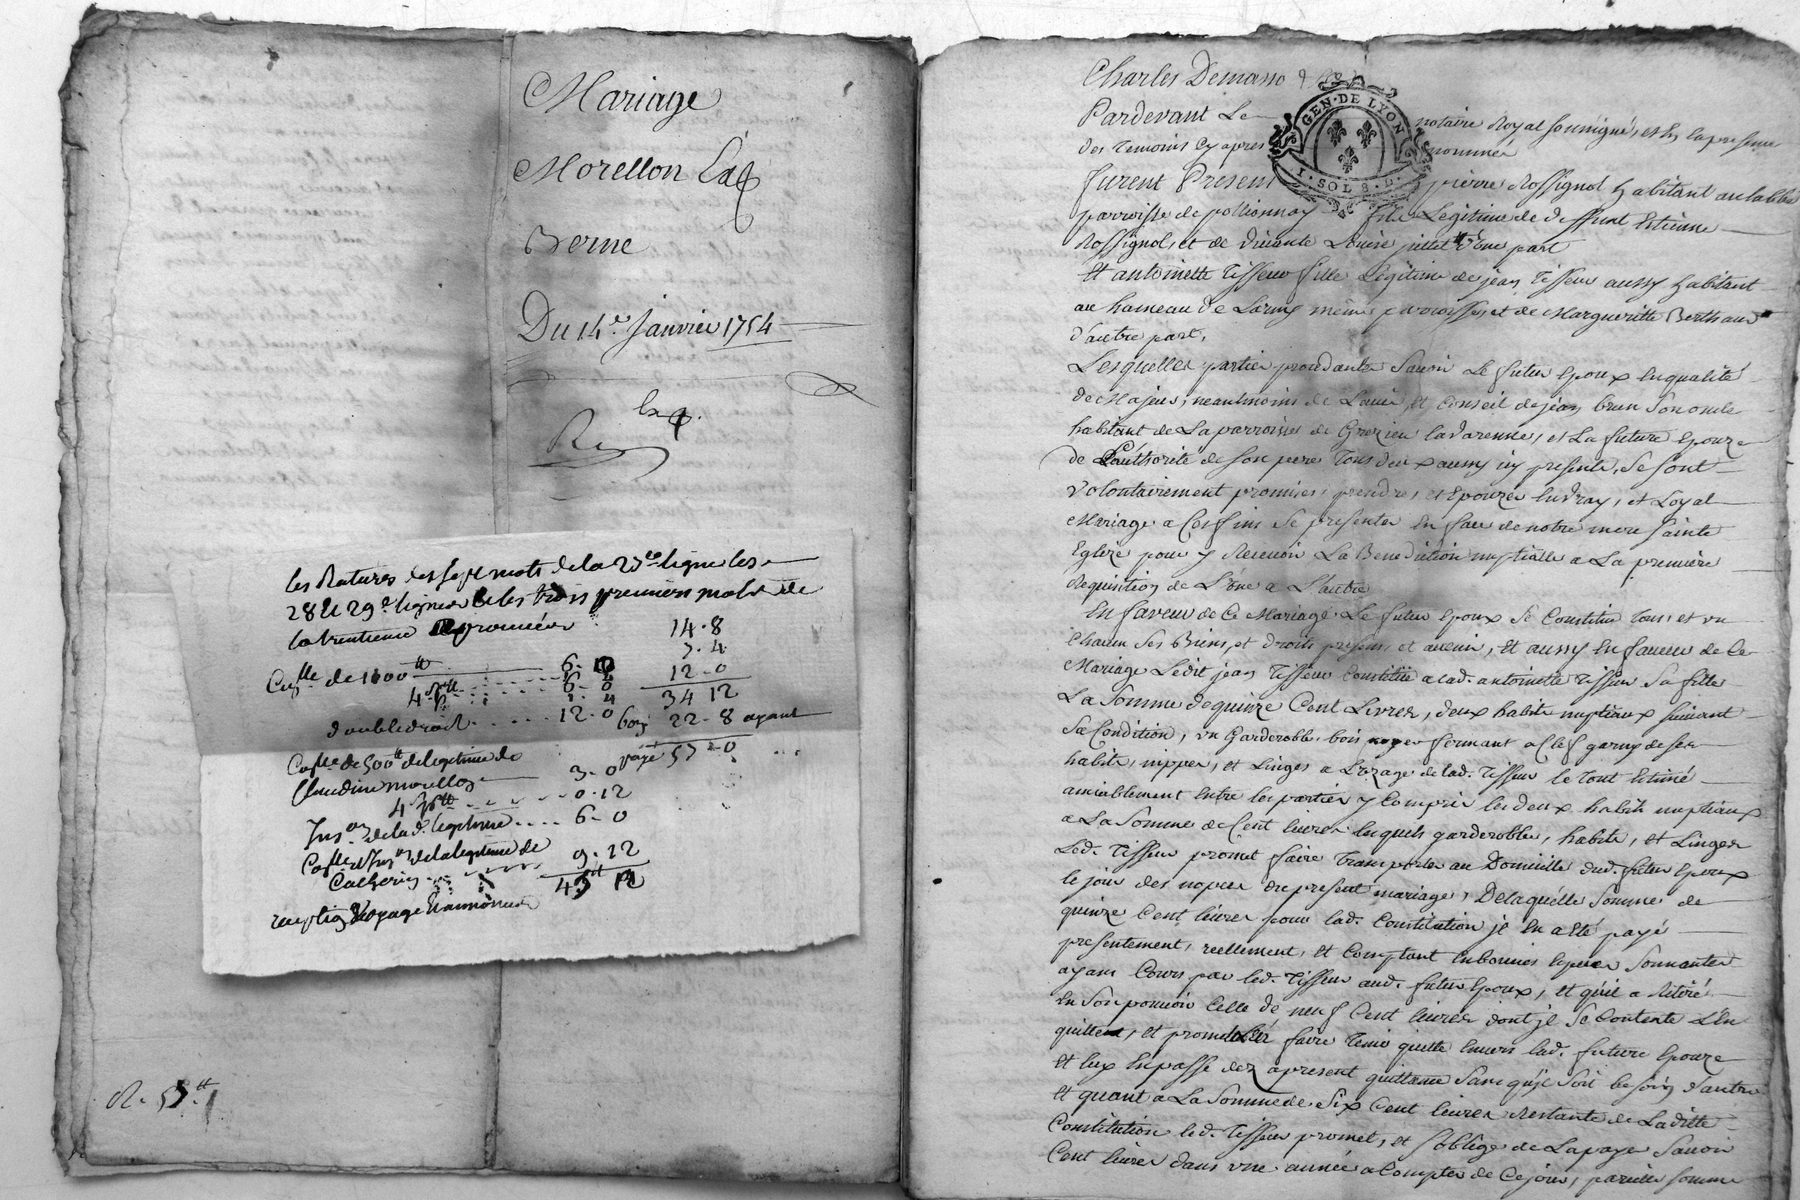 Mariage
Morellon
Berne
Du 14e Janvier 1754
les Ratures des sept mots de la 27e ligne les
28 et 29e lignes et les trois premiers mots de
la trentieme
14 . 8
7 . 4
de 1100 tt 6 - 12 - 0
6 - 0 34 12
double droit 12 - 0 22 - 8 ayant
payé 57 - 0
de 500 tt de legitime de
Claudine morellon 3 - 0
0 - 12
de lad. legitime 6 - 0
de la legitime de
Catherine 9 - 12
R. 57 tt
Charles Demasso
Pardevant Le notaire Royal soussigné, et en la presence
des temoins cy apres nommés
furent Present pierre Rossignol habitant
parroisse de pollionnay fils Legitime de deffunt Estienne
Rossignol, et de d'une part
Et antoinette Tisseur fille Legitime de jean Tisseur aussy habitant
au hameau de Larny même parroisse, et de Margueritte Berthaud
d'autre part,
Lesquelles parties procedantes Savoir Le futur Epoux En qualité
de Majeur, neantmoins de L'avis, et Conseil de jean brun Son oncle
habitant de La parroisse de Grezieu lavarenne, et La future Epouze
de L'authorité de son pere Tous deux aussy icy presents, Se sont
volontairement promises, prendre, et Epouzer En vray, et Loyal
Mariage a Ces fins Se presenter En face de notre mere Sainte
Eglize pour y Recevoir La Benediction nuptialle a La premiere
Requisition de L'une a L'autre
En faveur de Ce Mariage Le futur Epoux Se Constitue Tous, et un
Chacun Ses Biens, et droits presens, et avenir, Et aussy En faveur de Ce
Mariage Ledit jean Tisseur Constitue a lad. antoinette Tisseur Sa fille
La Somme de quinze Cent Livres, deux habits nuptiaux Suivant
Sa Condition, un Garderobbe bois noyer fermant a Clef garny de ses
habits, nippes, et Linges a L'uzage de lad. Tisseur le Tout Estimé
amiablement Entre les parties y Compris les deux habits nuptiaux
a La Somme de Cent livres Lesquels garderobbe, habits, et Linges
Led. Tisseur promet faire Transporter au Domicille dud. futur Epoux
le jour des nopces du present mariage, De laquelle Somme de
quinze Cent livres pour lad. Constitution il En a Eté payé
presentement, reellement, et Comptant En bonnes Especes Sonnantes
ayans Cours par led. Tisseur aud. futur Epoux, et qu'il a Retiré
En Son pouvoir Celle de neuf Cent livres dont il Se Contente L'En
quitte, et promet L'En faire Tenir quitte Envers lad. future Epouze
Et Luy En passe dez apresent quittance Sans qu'il Soit besoin d'autre
Et quant a La Somme de Six Cent livres Restante de Laditte
Constitution led. Tisseur promet, et S'oblige de La payer Savoir
Cent livres dans une année a Compter de Ce jour, pareille Somme
GEN. DE LYON
I. SOL 8. D.